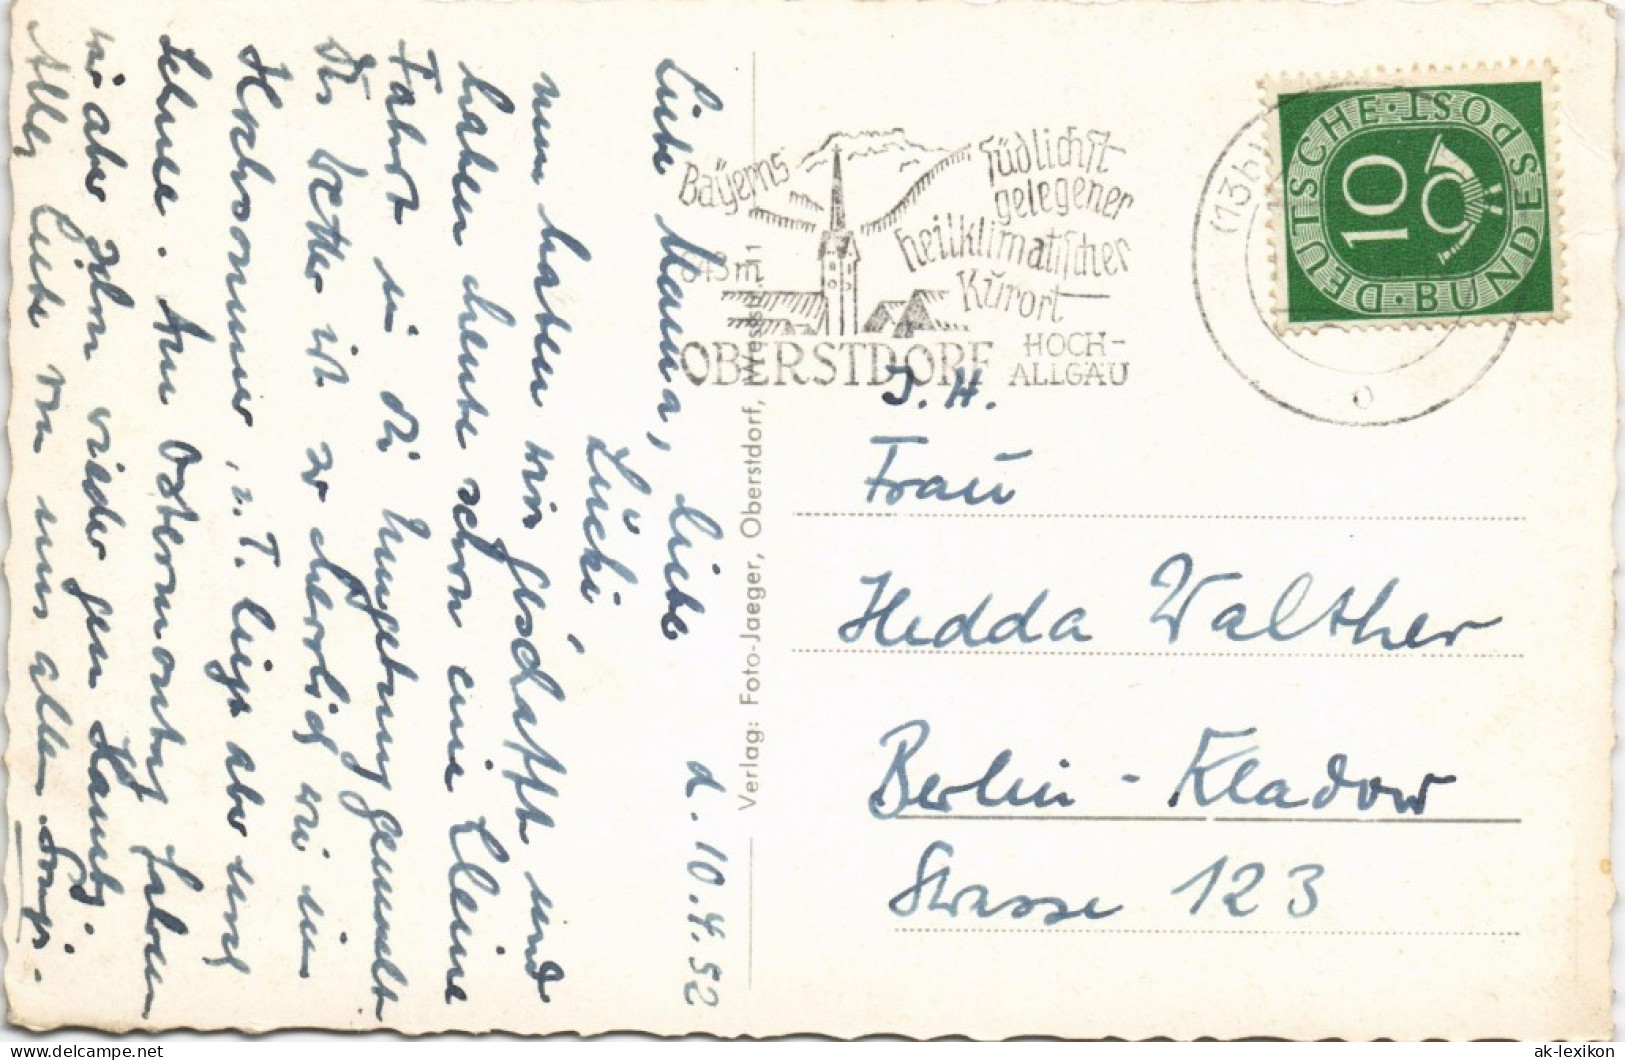 Liebe Mama, liebe
d. 10.4.52
Lücki
nun haben wir geschafft und
haben heute schon eine kleine
Fahrt in die Umgebung gemacht
Das Wetter ist so herrlich wie im
Hochsommer, z. T. liegt aber noch
Schnee. Am Ostermontag fahren
wir aber schon wieder gen
Alles Liebe von uns allen
Verlag: Foto-Jaeger, Oberstdorf, Westst. 11
Bayerns
843 m
südlichst
gelegener
heilklimatischer
Kurort
OBERSTDORF
HOCH-
ALLGÄU
(13b)
DEUTSCHE · BUNDESPOST
10
I. H.
Frau
Hedda Walther
Berlin - Kladow
Strasse 123
ak-lexikon